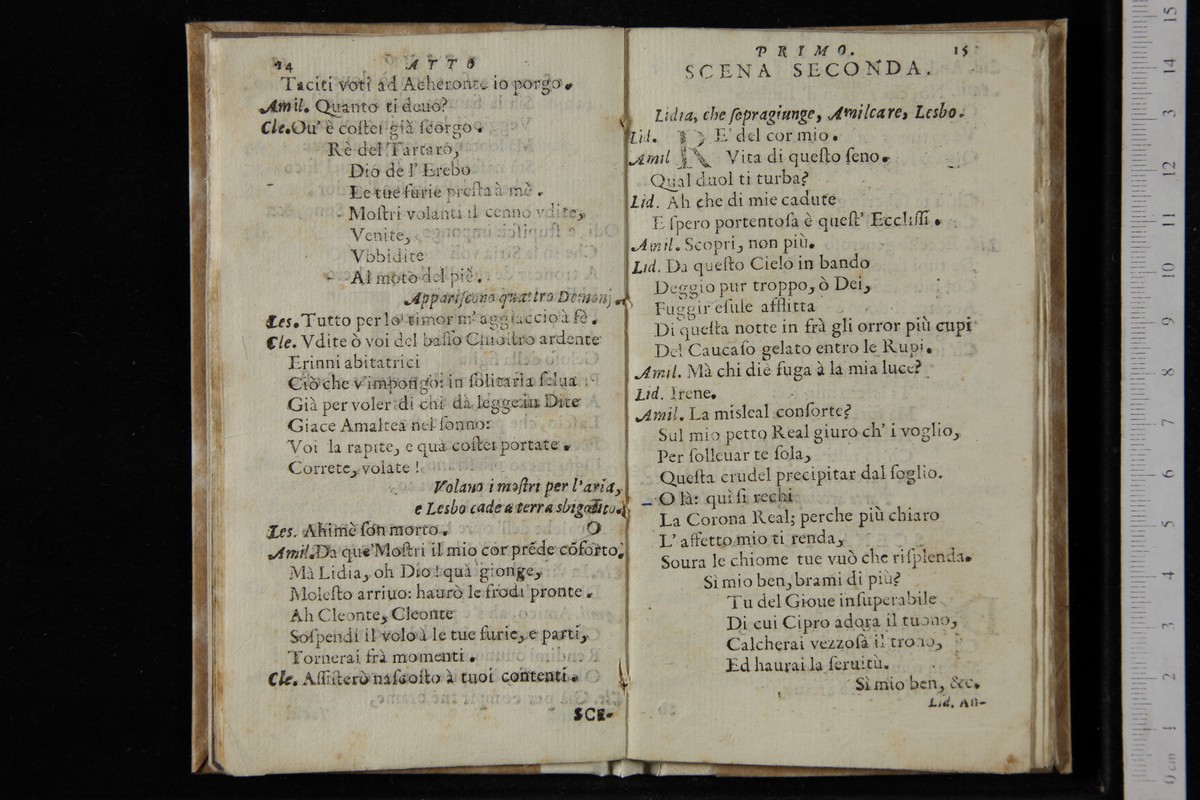 14 ATTO
Taciti voti ad Acheronte io porgo.
Amil. Quanto ti deuo?
Cle. Ou' è coſtei già ſcorgo.
Rè del Tartaro,
Dio de l' Erebo
Le tue furie preſta à mè.
Moſtri volanti il cenno vdite,
Venite,
Vbbidite
Al moto del piè.
Appariſcono quattro Demonj.
Les. Tutto per lo timor m' agghiaccio à fè.
Cle. Vdite ò voi del baſſo Chioſtro ardente
Erinni abitatrici
Ciò che v'impongo: in ſolitaria ſelua
Già per voler di chi dà legge in Dite
Giace Amaltea nel ſonno:
Voi la rapite, e quà coſtei portate.
Correte, volate!
Volano i moſtri per l'aria,
e Lesbo cade a terra sbigotito.
Les. Ahimè ſon morto. O
Amil. Da que' Moſtri il mio cor prẽde cõforto;
Mà Lidia, oh Dio! quà gionge,
Moleſto arriuo: haurò le frodi pronte.
Ah Cleonte, Cleonte
Soſpendi il volo à le tue furie, e parti,
Tornerai frà momenti.
Cle. Aſſiſterò naſcoſto à tuoi contenti.
SCE-
PRIMO. 15
SCENA SECONDA.
Lidia, che ſopragiunge, Amilcare, Lesbo.
Lid. RE' del cor mio.
Amil Vita di queſto ſeno.
Qual duol ti turba?
Lid. Ah che di mie cadute
E ſpero portentoſa è queſt' Eccliſſi.
Amil. Scopri, non più.
Lid. Da queſto Cielo in bando
Deggio pur troppo, ò Dei,
Fuggir eſule afflitta
Di queſta notte in frà gli orror più cupi
Del Caucaſo gelato entro le Rupi.
Amil. Mà chi diè fuga à la mia luce?
Lid. Irene.
Amil. La misleal conſorte?
Sul mio petto Real giuro ch' i voglio,
Per ſolleuar te ſola,
Queſta crudel precipitar dal ſoglio.
O là: quì ſi rechi
La Corona Real; perche più chiaro
L' affetto mio ti renda,
Soura le chiome tue vuò che riſplenda.
Sì mio ben, brami di più?
Tu del Gioue inſuperabile
Di cui Cipro adora il tuono,
Calcherai vezzoſa il trono,
Ed haurai la ſeruitù.
Sì mio ben, &c.
Lid. An-